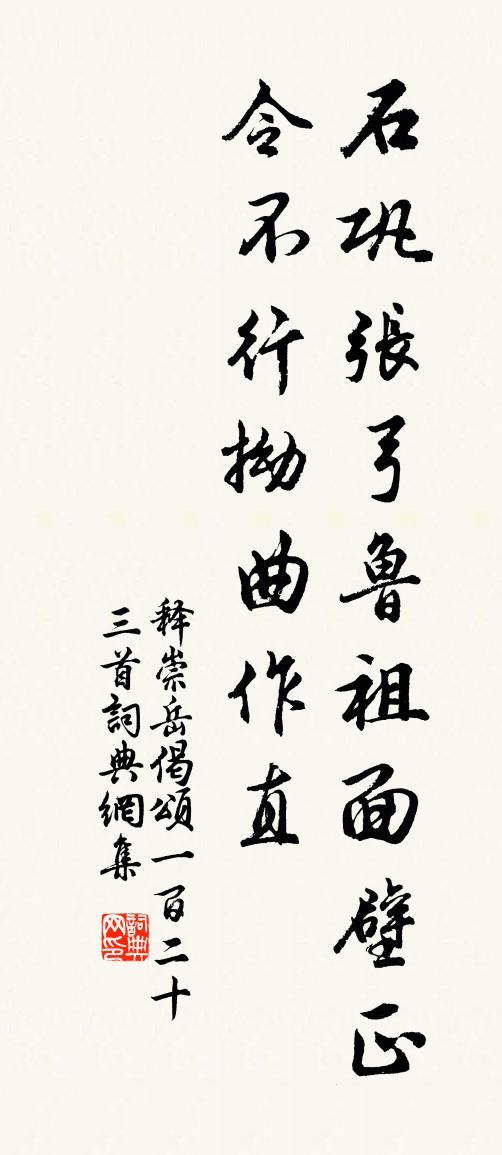 石巩張弓魯祖面壁正
令不行拗曲作直
释崇岳偈頌一百二十
三首詞典網集
詞典网印